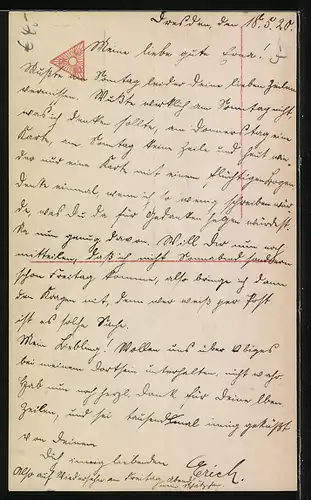 Dresden, den 18.5.20.
Meine liebe gute Erna!
Mußte am Sonntag leider deine lieben Zeilen
vermissen. Wußte wirklich am Sonntag nicht
was ich denken sollte, am Donnerstag eine
Karte, am Sonntag keine Zeile und heut wie-
der nur eine Karte mit einem flüchtigen
Denke einmal, wenn ich so wenig schreiben wür-
de, was Du da für Gedanken hegen würdest.
Na nun genug davon. Will Dir nun noch
mitteilen, daß ich nicht Sonnabend sondern
schon Freitag komme, also bringe ich dann
den Kragen mit, denn wer weiß per Post
ist es solche Sache.
Mein Liebling! Wollen uns über Obiges
bei meinem Dortsein unterhalten, nicht wahr.
Hab nun noch herzl. Dank für Deine lben
Zeilen, und sei tausendmal innig geküßt
von Deinem
Dich innig liebenden Erich.
Also auf Wiedersehen am Freitag abend